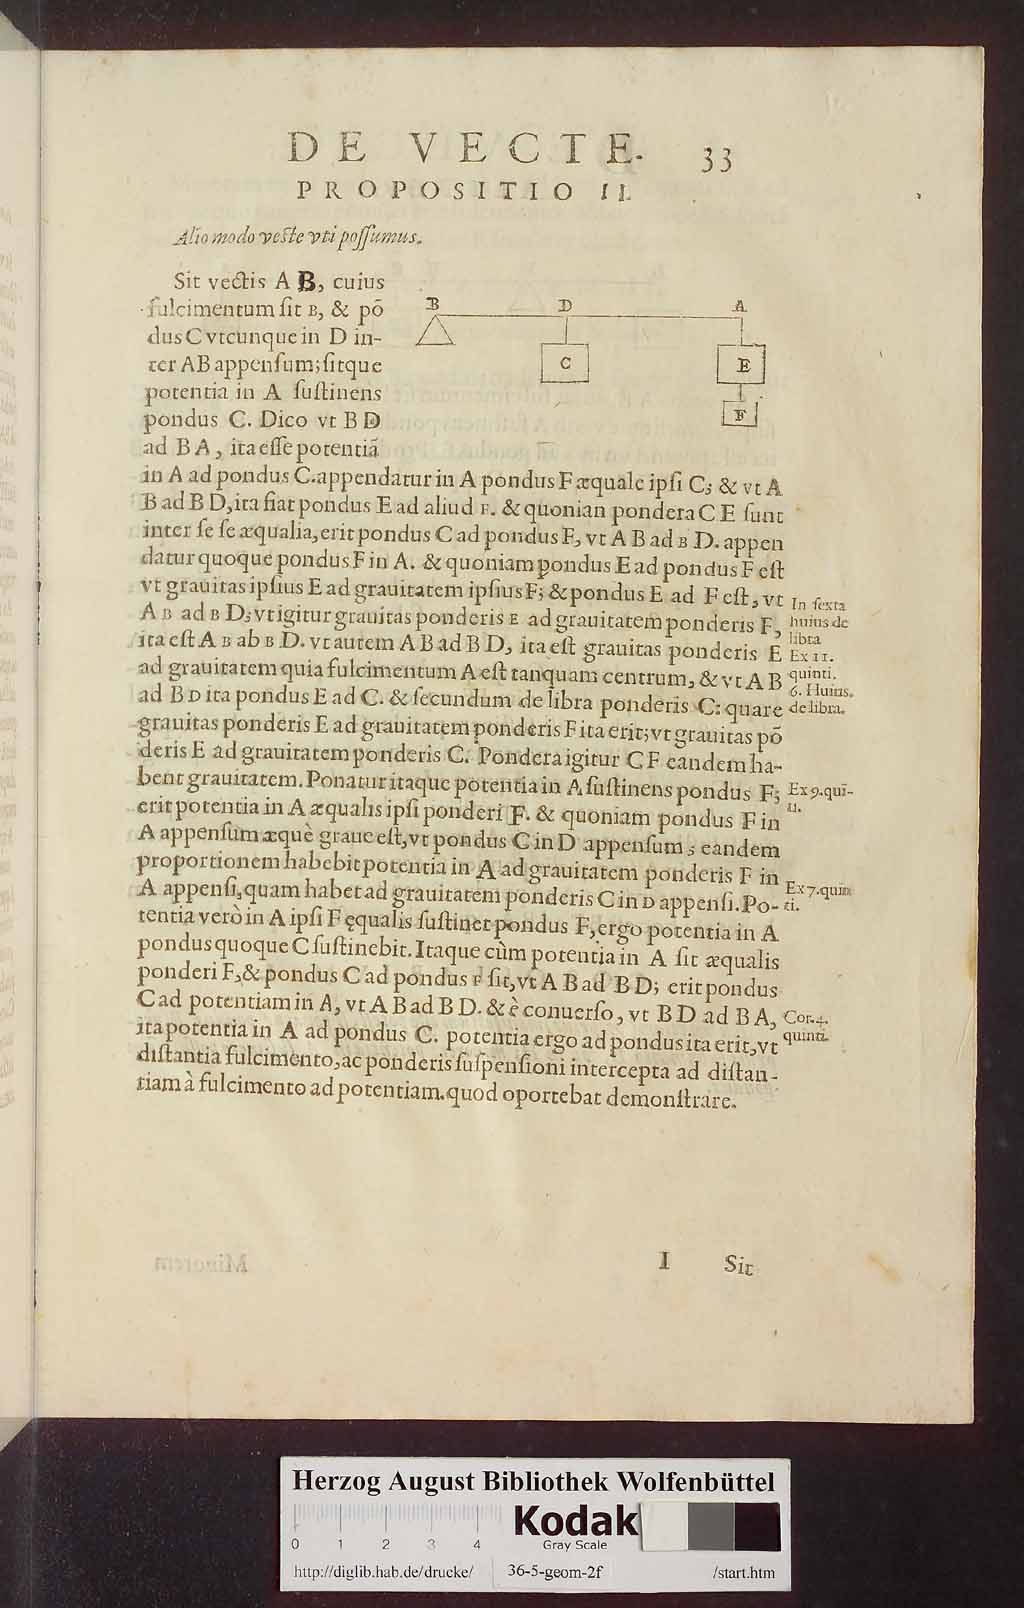 DE VECTE. 33
PROPOSITIO II.
Alio modo vecte vti possumus.
Sit vectis A B, cuius
fulcimentum sit B, & põ
dus C vtcunque in D in-
ter AB appensum; sitque
potentia in A sustinens
pondus C. Dico vt B D
ad B A, ita esse potentiã
B D A
C E
F
in A ad pondus C. appendatur in A pondus F æquale ipsi C; & vt A
B ad B D, ita fiat pondus E ad aliud F. & quonian pondera C E sunt
inter se se æqualia, erit pondus C ad pondus F, vt A B ad B D. appen
datur quoque pondus F in A. & quoniam pondus E ad pondus F est
vt grauitas ipsius E ad grauitatem ipsius F; & pondus E ad F est, vt
A B ad B D; vt igitur grauitas ponderis E ad grauitatem ponderis F,
ita est A B ab B D. vt autem A B ad B D, ita est grauitas ponderis E
ad grauitatem quia fulcimentum A est tanquam centrum, & vt A B
ad B D ita pondus E ad C. & secundum de libra ponderis C: quare
grauitas ponderis E ad grauitatem ponderis F ita erit; vt grauitas põ
deris E ad grauitatem ponderis C. Pondera igitur C F eandem ha-
bent grauitatem. Ponatur itaque potentia in A sustinens pondus F;
erit potentia in A æqualis ipsi ponderi F. & quoniam pondus F in
A appensum æquè graue est, vt pondus C in D appensum; eandem
proportionem habebit potentia in A ad grauitatem ponderis F in
A appensi, quam habet ad grauitatem ponderis C in D appensi. Po-
tentia verò in A ipsi F ęqualis sustinet pondus F, ergo potentia in A
pondus quoque C sustinebit. Itaque cùm potentia in A sit æqualis
ponderi F, & pondus C ad pondus F sit, vt A B ad B D; erit pondus
C ad potentiam in A, vt A B ad B D. & è conuerso, vt B D ad B A,
ita potentia in A ad pondus C. potentia ergo ad pondus ita erit, vt
distantia fulcimento, ac ponderis suspensioni intercepta ad distan-
tiam à fulcimento ad potentiam. quod oportebat demonstrare.
In sexta
huius de
libra
Ex 11.
quinti.
6. Huius.
de libra.
Ex 9. quī-
ti.
Ex 7. quin
ti.
Cor. 4.
quinti.
I Sit
Herzog August Bibliothek Wolfenbüttel
Kodak
0 1 2 3 4 Gray Scale
http://diglib.hab.de/drucke/ 36-5-geom-2f /start.htm